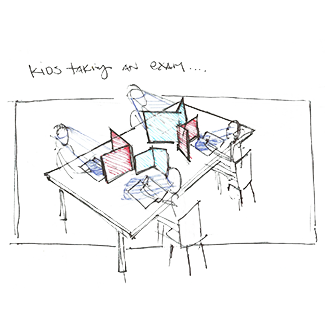 KIDS TAKING AN EXAM....